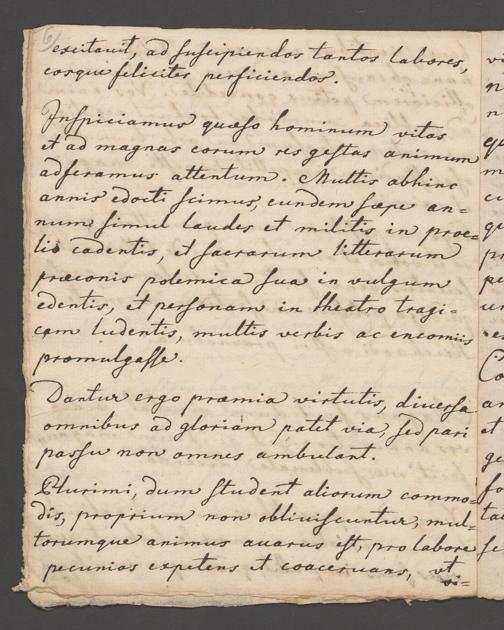 6)
excitavit, ad suscipiendos tantos labores,
eosque feliciter perficiendos.
Inspiciamus quæso hominum vitas
et ad magnas eorum res gestas animum
adferamus attentum. Multis abhinc
annis edocti scimus, eundem sæpe an=
num simul laudes et militis in proe=
lio cadentis, et sacrarum litterarum
præconis polemica sua in vulgum
edentis, et personam in theatro tragi=
cam ludentis, multis verbis ac encomiis
promulgasse.
Dantur ergo præmia virtutis, diversa
omnibus ad gloriam patet via, sed pari
passu non omnes ambulant.
Plurimi, dum student aliorum commo=
dis, proprium non obliviscuntur, mul=
torumque animus avarus est, pro labore
pecunias expetens et coacervans, ut
vi=